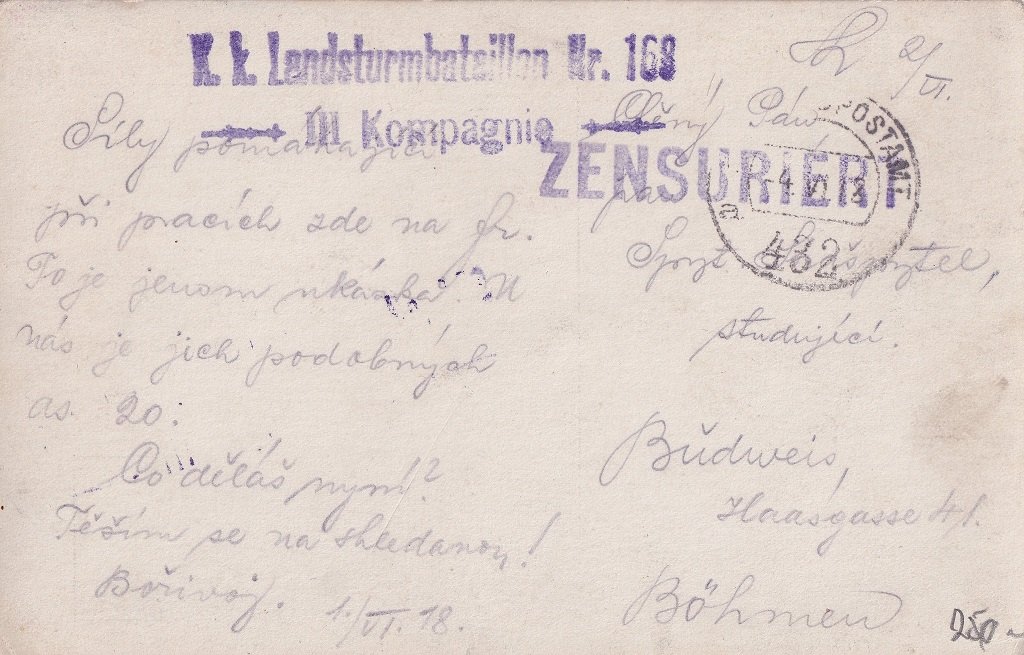 K. k. Landsturmbataillon Nr. 168
III. Kompagnie
ZENSURIERT
POSTAMT
432
Síly pomáhající
při pracích zde na fr.
To je jenom ukázka. U
nás je jich podobných
as. 20.
Co děláš nyní?
Těším se na shledanou!
Bořivoj. 1./VI. 18.
Ctěný Pán
studující.
Budweis,
Haasgasse 41.
Böhmen
250 -